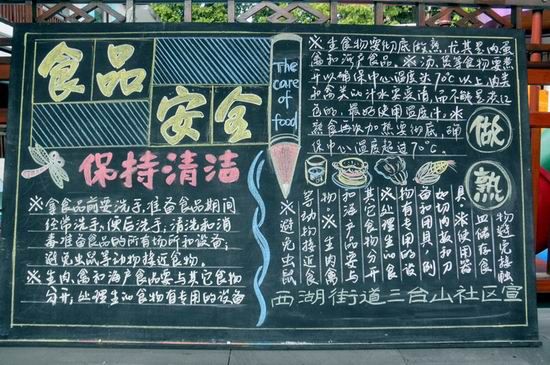 食品
安全
The
care
of
food
保持清洁
※拿食品前要洗手,准备食品期间
经常洗手,便后洗手,清洗和消
毒准备食品的所有场所和设备;
避免虫鼠等动物接近食物。
※生肉、禽和海产食品要与其它食物
分开;处理生的食物有专用的设备
※生食物要彻底的熟,尤其是肉蛋
禽和海产食品。※汤、煲等食物要煮
开以确保中心温度达70℃以上,肉类
和禽类的汁水要变清,而不能是淡红
色的,最好使用温度计。※
熟食再次加热要彻底,确
保中心温度超过70℃。
做
熟
物避免接触
血储存食
具※使用器
如切肉板和刀
备和用具,例
物有专用的设
※处理生的食
其它食物分开
和海产品要与
物※生肉、禽
等动物接近食
※避免虫鼠
西湖街道三台山社区宣